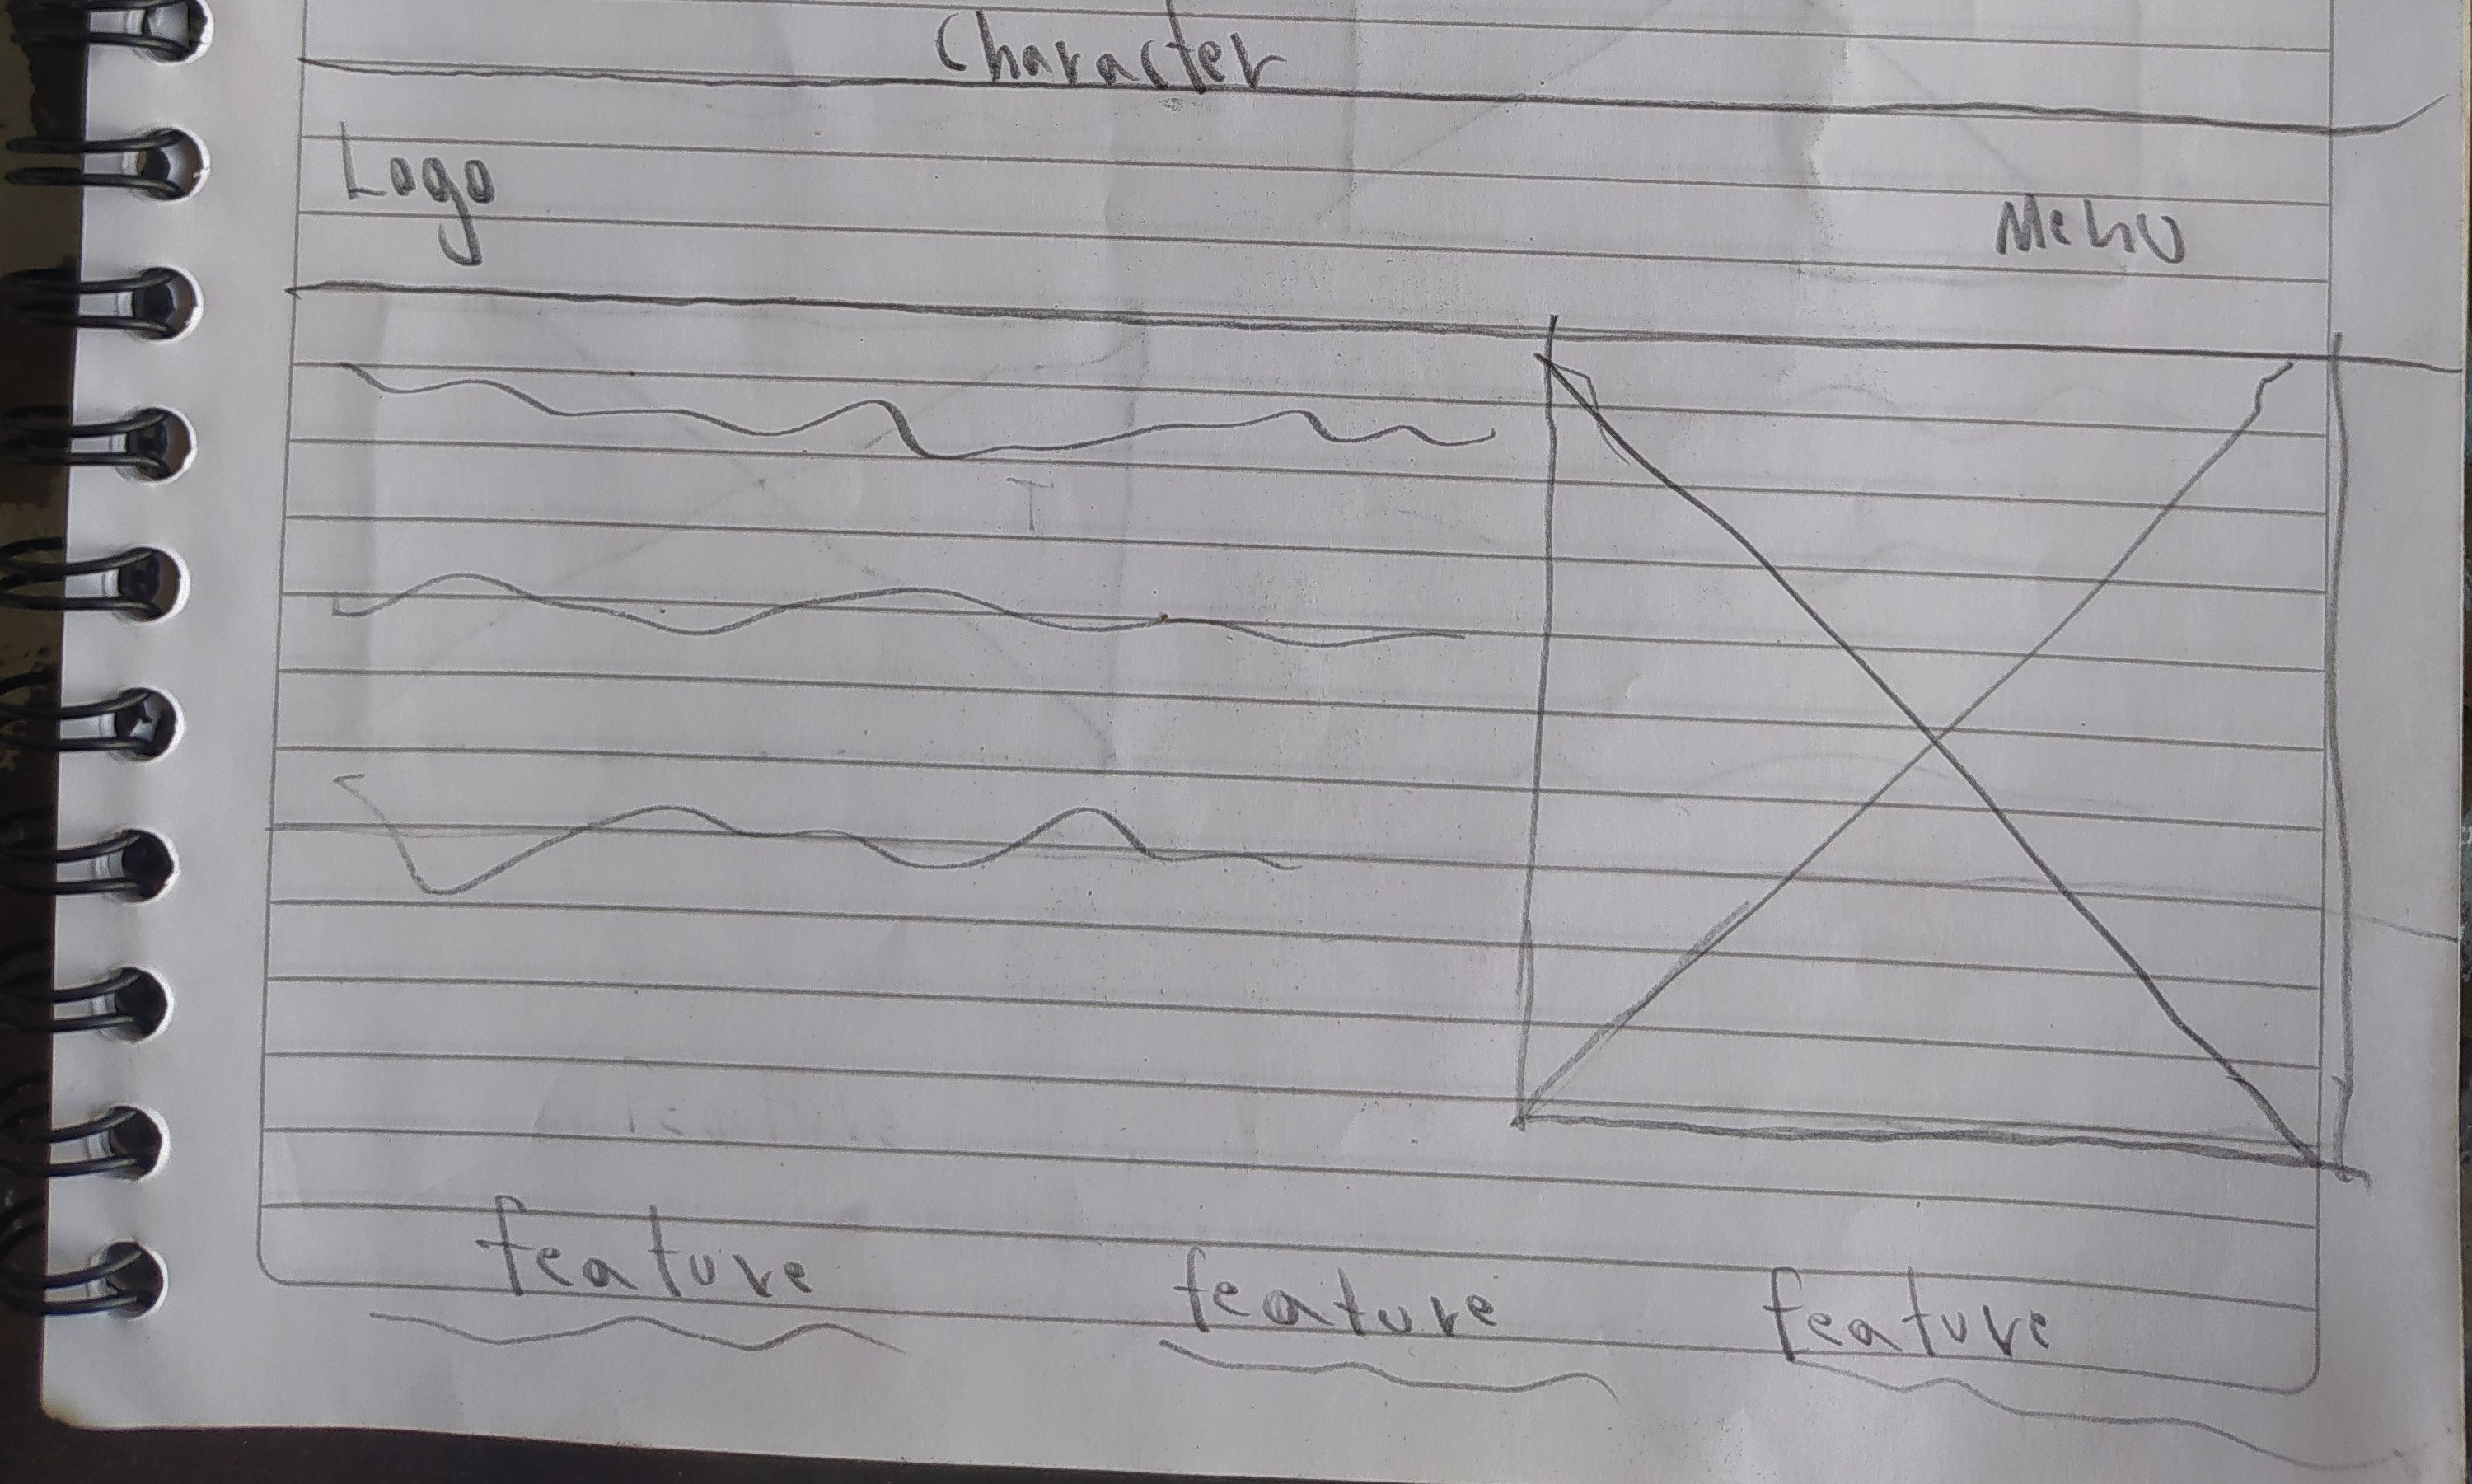 Character
Logo
Menu
feature
feature
feature